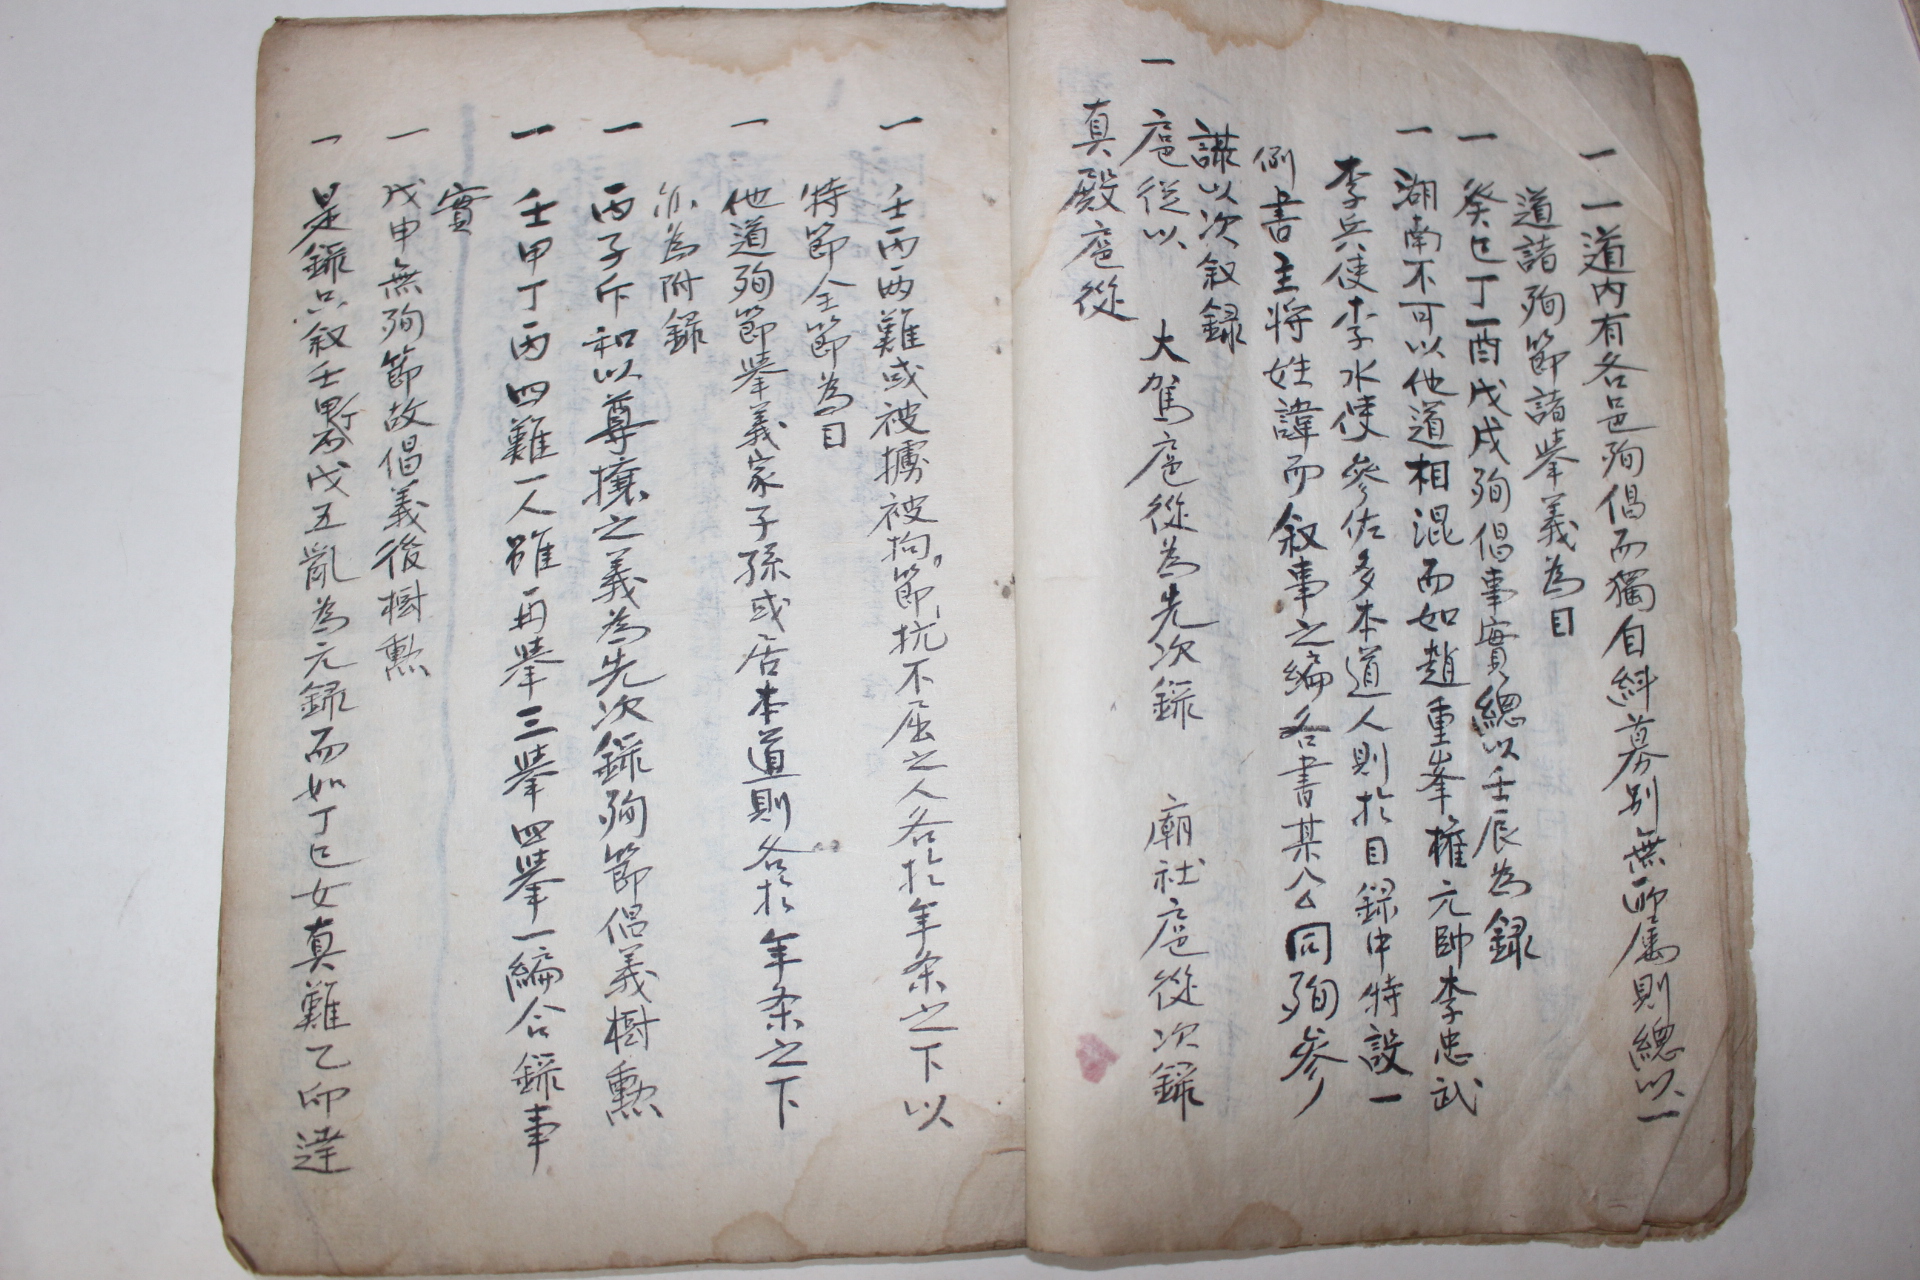 一 一道内有各邑殉倡而獨自糾募別無所屬則總以一
道諸殉節諸擧義為目
一 癸巳丁酉戊戌殉倡事實總以壬辰為錄
一 湖南不可以他道相混而如趙重峯權元帥李忠武
李兵使李水使參佐多本道人則於目錄中特設一
例書主將姓諱而叙事之編各書某公同殉參
謀以次叙錄
一 扈從以 大駕扈從為先次錄 廟社扈從次錄
真殿扈從
一 壬丙両難或被擄被拘節抗不屈之人各於年条之下以
特節全節為目
一 他道殉節擧義家子孫或居本道則各於年条之下
亦為附錄
一 丙子斥和以尊攘之義為先次錄殉節倡義樹勲
一 壬甲丁丙四難一人雖再擧三擧四擧一編合錄事
實
一 戊甲無殉節故倡義後樹勲
一 是錄只叙壬丙戊五亂為元錄而如丁巳女真難乙卯達